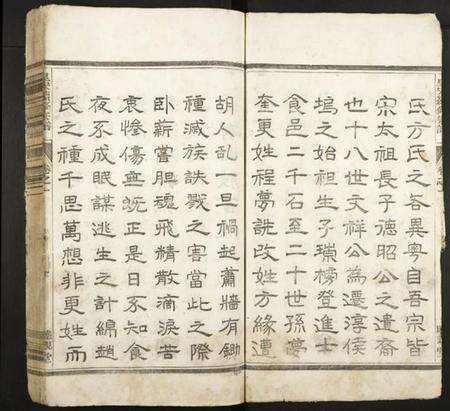 氏方氏之各異粵自吾宗皆
宋太祖長子德昭公之遺裔
也十八世文祥公為遷淳侯
塢之始祖生子瑞榜登進士
食邑二千石至二十世孫夢
奎更姓程夢詵改姓方緣遭
胡人亂一旦禍起蕭牆有鋤
種滅族誅戮之害當此之際
臥薪嘗胆魂飛精散滴淚苦
哀慘傷無既正是日不知食
夜不成眠謀逃生之計綿趙
氏之種千思萬想非更姓而